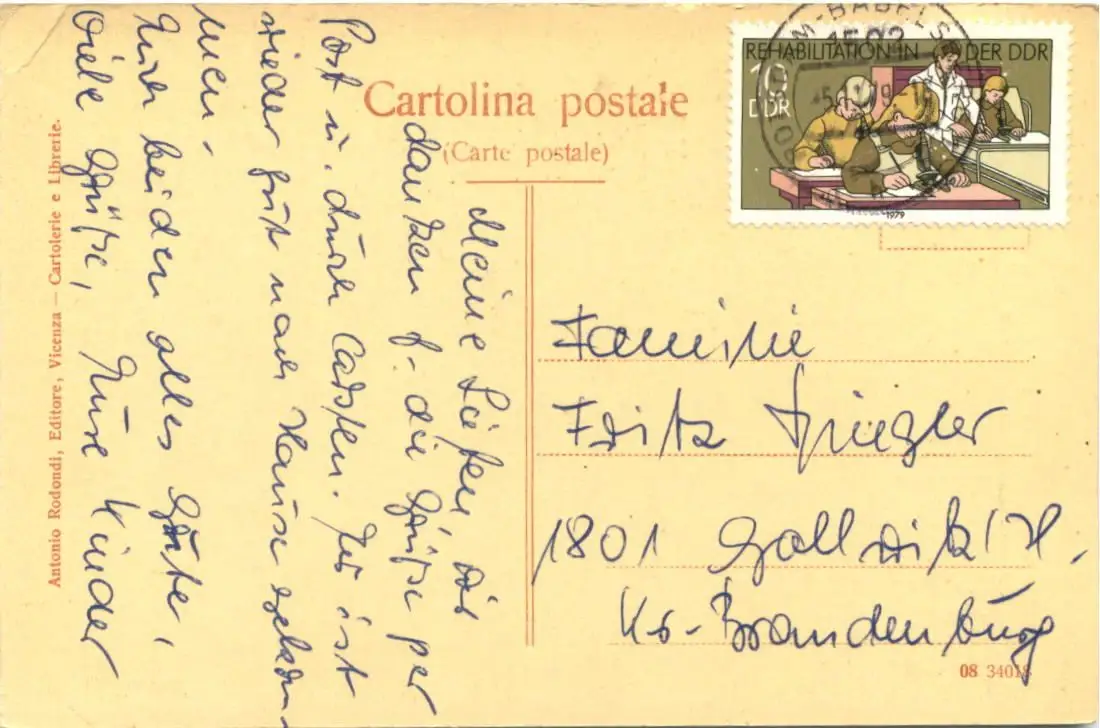 Cartolina postale
(Carte postale)
REHABILITATION IN DER DDR
10
DDR
1979
M-BABELS
1502
Meine Lieben, wir
danken f. die Grüße per
Post u. durch Carsten. Er ist
wieder gut nach Hause gekom-
men.
Euch beiden alles Gute,
Viele Grüße, Eure Kinder
Familie
Fritz
1801 Gollwitz/H.
Kr. Brandenburg
08 34018
Antonio Rodondi, Editore, Vicenza — Cartolerie e Librerie.